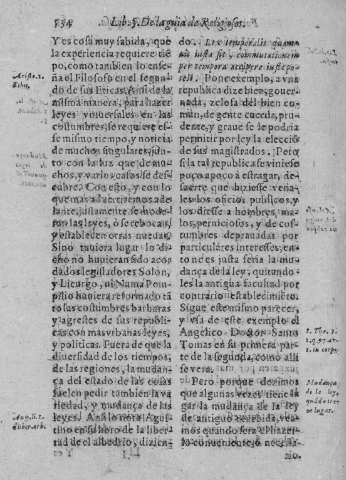 534 Lib. 5. De la guia de Religiosos.
Y es cosa muy sabida, què
la experiencia requiere tiẽ
po, como tambien lo enseña
el Filosofo en el segun
do de sus Eticas. Ansi de la
misma manera, para hazer
leyes vniuersales en las
costumbres, se requiere esse
mismo tiempo, y noticia
de muchos singulares, jun
to con la luz que de mu
chos, y varios casos se des
cubre. Con esto, y con lo
que mas
lante, justamente se mode
ran las leyes, o se reuocan,
y establecen otras nueuas.
Sino tuuiera lugar lo di
cho no huuieran sido acos
dados legisladores Solon,
y Licurgo, ni Numa Pom
pilio huuiera reformado tã
tas costumbres barbaras
y agrestes de sus republi
cas con mas vrbanas leyes,
y politicas. Fuera de que la
diuersidad de los tiempos,
de las regiones, la mudan
ça del estado de las cosas
suelen pedir tambien la va
riedad, y mudança de las
leyes. Ansi lo nota Agus
tino en su libro de la liber
tad de el albedrio, dizien-
do. Lex temporalis quamuis
iusta sit, commutari tamen
per tempora iuste potest.
Pone exemplo, a vna
republica bien gouer
nada, zelosa del bien co
mun, de gente cuerda, pru
dente, y graue se le podria
permitir por ley la elecciõ
de sus magistrados. Pero
si la tal republica se viniese
poco a poco a estragar, de
suerte que hiziesse vena
les los oficios publicos, y
los diesse a hombres, ma
los, perniciosos, y de cos
tumbres deprauadas por
particulares interesses, en
tonces justa seria la mu
dança de la ley, quitando
les la antigua facultad por
contrario establecimiẽto.
Sigue este mismo parecer,
y vsa de este exemplo el
Angelico Doctor Santo
Tomas en su primera par
te de la segunda, como alli
se vera.
Pero porque dezimos
que algunas vezes tiene lu
gar la mudança de la ley
de antiguo recebida, vea
mos quando sera el hazer
lo conueniente, o neces-
Mudança
de la ley,
quãdo tie
ne lugar.